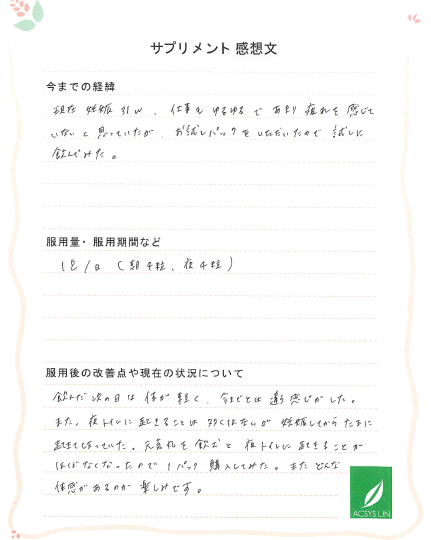 サプリメント 感想文
今までの経緯
現在 妊娠 31w、仕事も ゆるゆる で あまり 疲れを 感じて
いない と 思っていたが、お試しパック を いただいたので 試しに
飲んでみた。
服用量・服用期間など
1包/日 (朝4粒、夜4粒)
服用後の改善点や現在の状況について
飲んだ次の日は 体が軽く、今までとは 違う感じがした。
また、夜トイレに 起きることは 多くはないが 妊娠してから たまに
起きてしまっていた。元気札を飲むと 夜トイレに起きることが
ほぼなくなったので 1パック 購入してみた。また どんな
体感があるのか 楽しみです。
ACSYS LIN